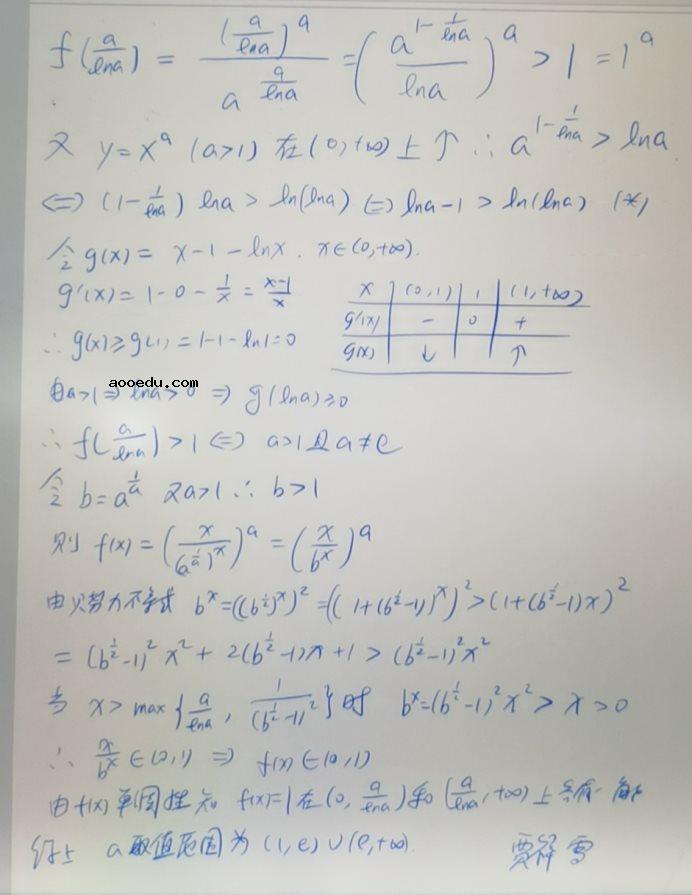 f(a/lna) = (a/lna)^a / a^(a/lna) = (a^(1-1/lna) / lna)^a > 1 = 1^a
又 y=x^a (a>1) 在(0,+∞)上↑ ∴ a^(1-1/lna) > lna
⇔ (1-1/lna) lna > ln(lna) ⇔ lna-1 > ln(lna) (*)
令 g(x) = x-1-lnx. x∈(0,+∞).
g'(x) = 1-0-1/x = (x-1)/x
∴ g(x)≥g(1)=1-1-ln1=0
x | (0,1) | 1 | (1,+∞)
g'(x) | - | 0 | +
g(x) | ↓ | | ↑
aooedu.com
由a>1⇒lna>0 ⇒ g(lna)≥0
∴ f(a/lna)>1 ⇔ a>1且a≠e
令 b=a^(1/a) 又a>1 ∴ b>1
则 f(x) = (x/(a^(1/a))^x)^a = (x/b^x)^a
由贝努力不等式 b^x=((b^(1/2))^x)^2=((1+(b^(1/2)-1))^x)^2>(1+(b^(1/2)-1)x)^2
= (b^(1/2)-1)^2 x^2 + 2(b^(1/2)-1)x+1 > (b^(1/2)-1)^2 x^2
当 x> max{a/lna, 1/(b^(1/2)-1)^2}时 b^x=(b^(1/2)-1)^2 x^2 > x > 0
∴ x/b^x ∈(0,1) ⇒ f(x)∈(0,1)
由f(x)单调性知 f(x)=1在(0, a/lna)和(a/lna,+∞)上各有一解
综上 a取值范围为 (1,e)∪(e,+∞)